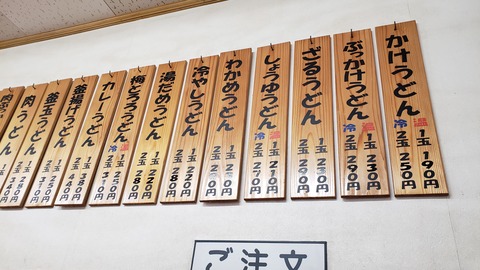 かけうどん
温
1玉 190円
2玉 250円
ぶっかけうどん
冷 温
1玉 230円
2玉 290円
ざるうどん
1玉 230円
2玉 290円
しょうゆうどん
冷 温
1玉 210円
2玉 270円
わかめうどん
1玉
2玉
冷やしうどん
1玉 220円
2玉 280円
湯だめうどん
1玉 220円
2玉 280円
梅とろろうどん
2玉 280円
カレーうどん
冷 温
1玉 250円
2玉 310円
釜揚げうどん
1玉 380円
2玉 440円
釜玉うどん
1玉 250円
2玉 310円
肉うどん
1玉
2玉
ご注文